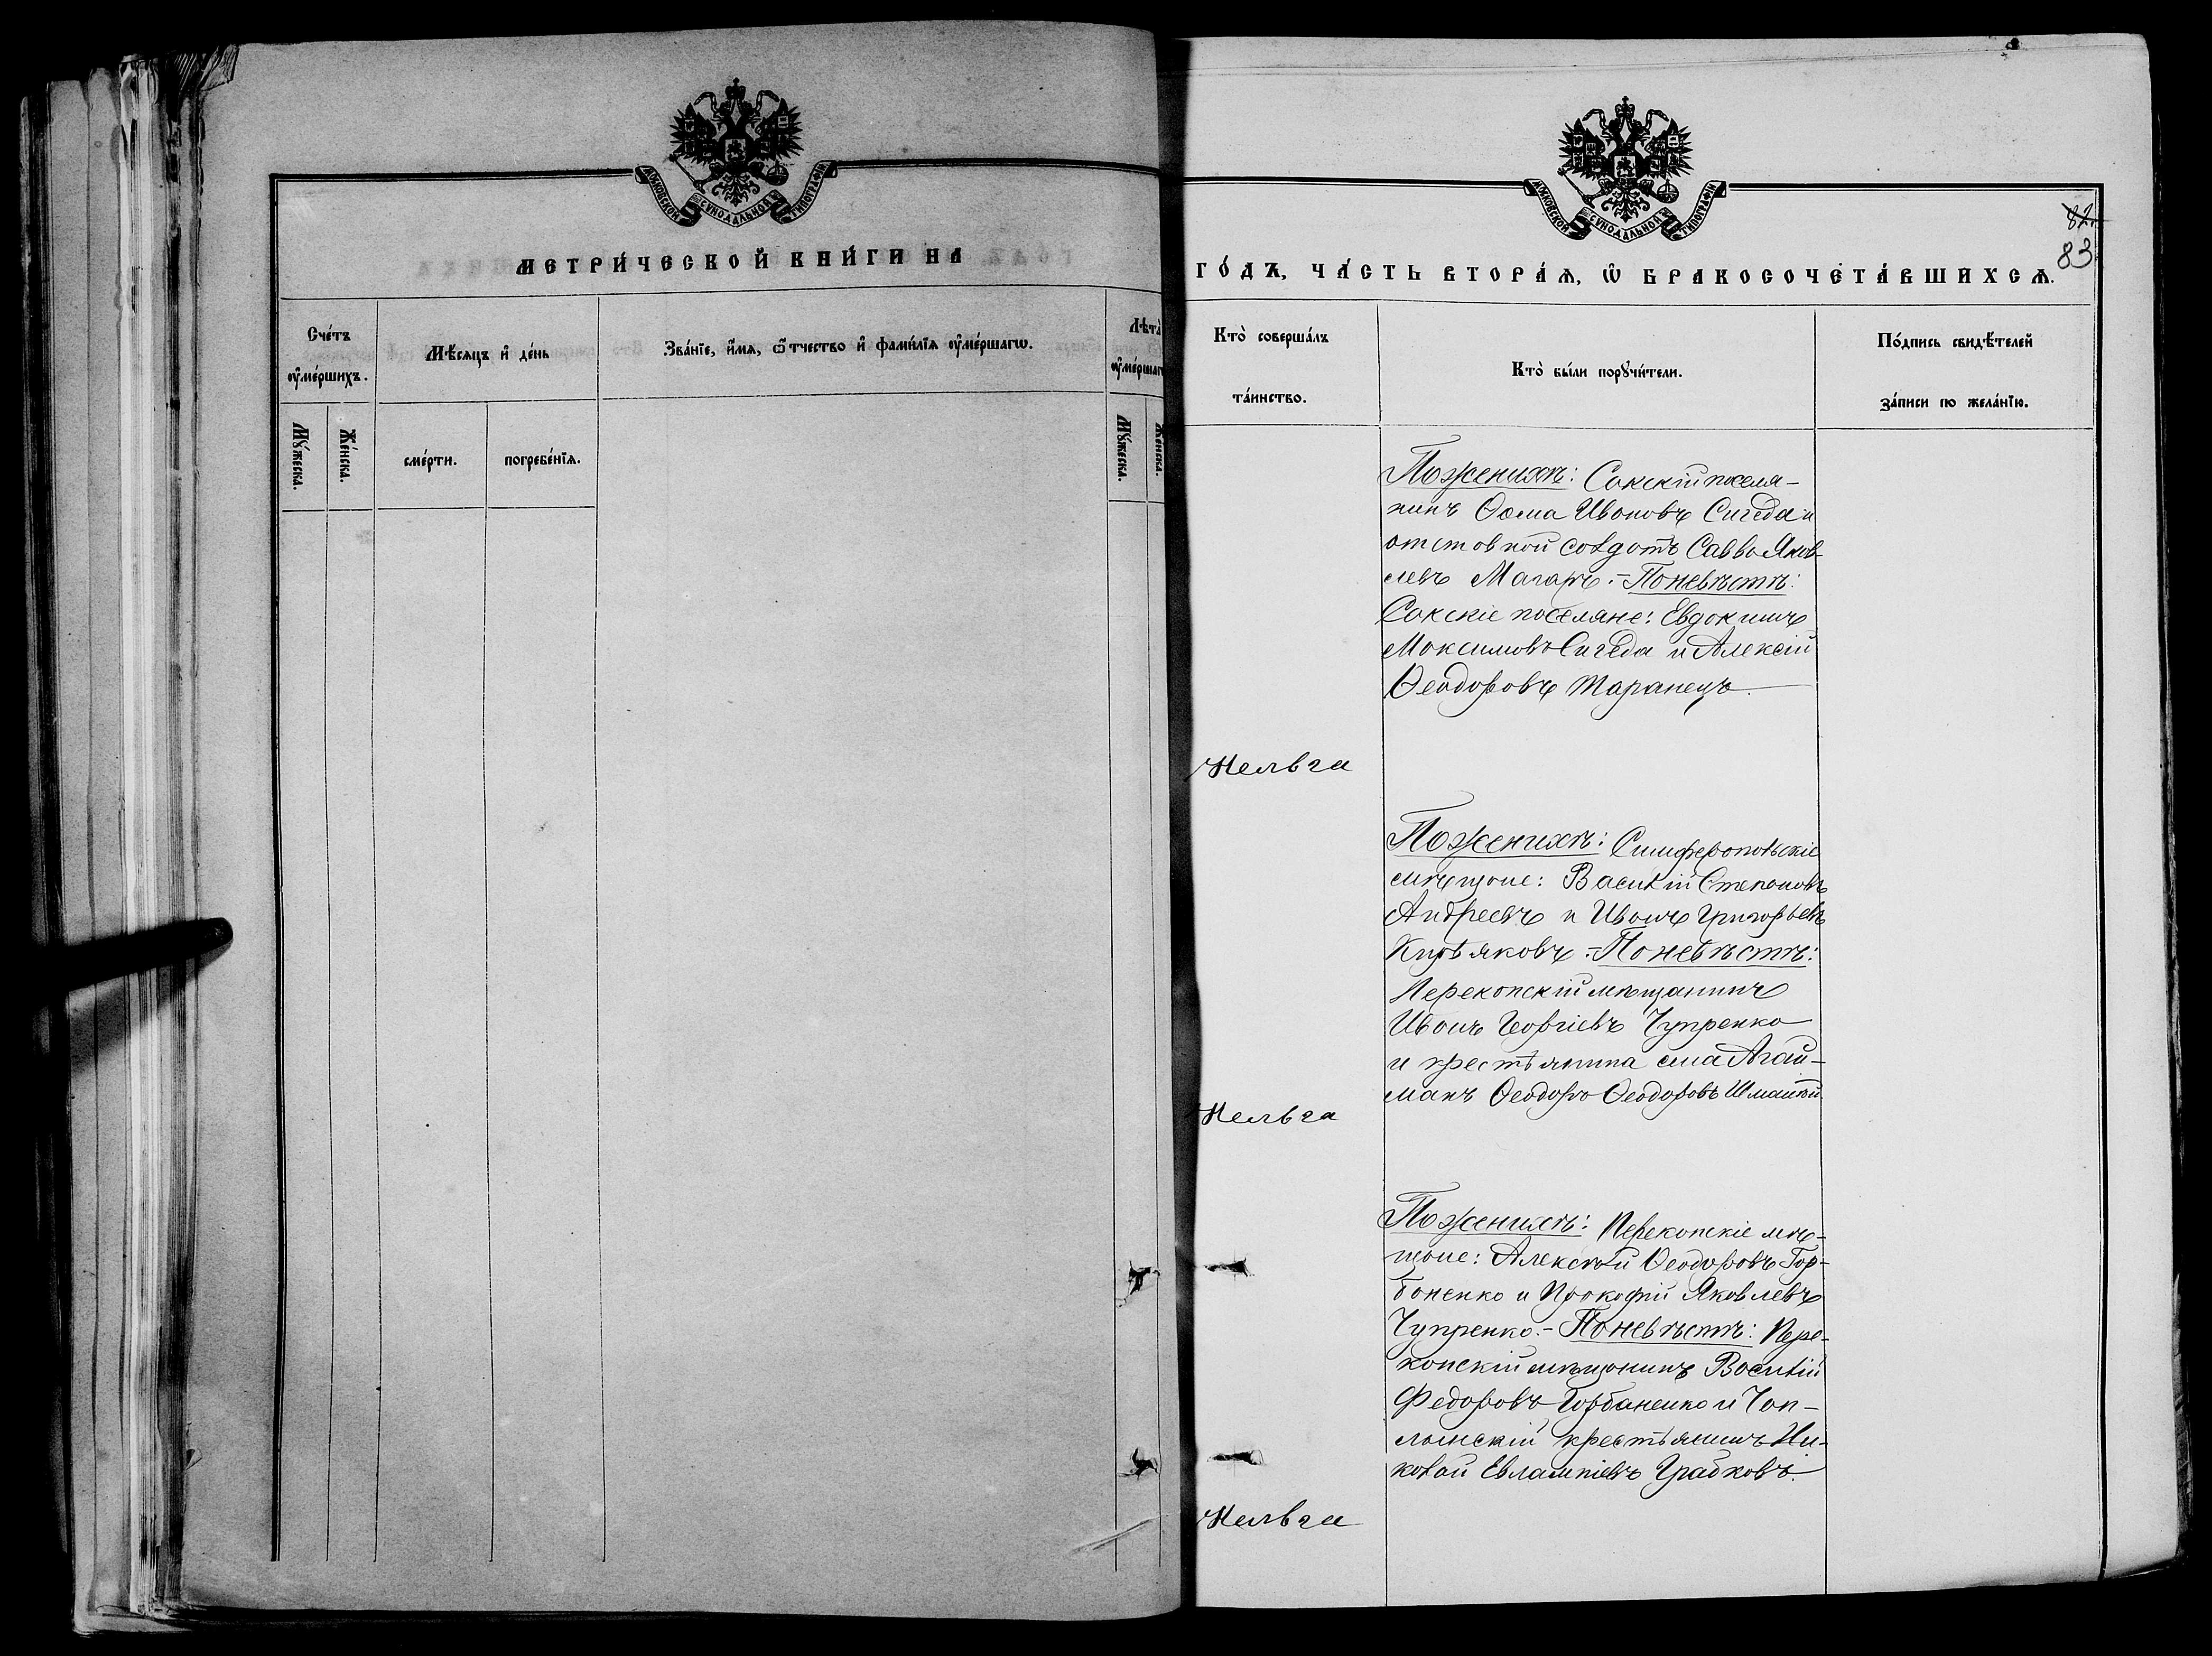 МОСКОВСКОЙ СѴНОДАЛЬНОЙ ТИПОГРАФІИ
МЕТРИ́ЧЕСКОЙ КНИ́ГИ НА
Сче́тъ ᲂу҆ме́ршихъ.
Мѣ́сяцъ и҆ де́нь
Зва́нїе, и҆́мѧ, ѻ҆́тчество и҆ фами́лїѧ ᲂу҆ме́ршагѡ.
Лѣта̀ ᲂу҆ме́ршаг
Мꙋ́жеска.
Же́нска.
сме́рти.
погребе́нїѧ.
Мꙋ́жеска.
Же́нска.
МОСКОВСКОЙ СѴНОДАЛЬНОЙ ТИПОГРАФІИ
82.
83
ГО́ДЪ, ЧА́СТЬ ВТОРА́Ѧ, Ѡ҆ БРАКОСОЧЕТА́ВШИХСѦ.
Кто̀ соверша́лъ
та́инство.
Кто̀ бы́ли порꙋчи́тели.
По́дпись свидѣ́телей
за́писи по жела́нїю.
По женихѣ: Сакскій поселя-
нинъ Ѳома Ивановъ Сигеда и
отставной солдатъ Савва Яков-
левъ Магаръ. - По невѣстѣ:
Сакскіе поселяне: Евдокимъ
Максимовъ Сигеда и Алексій
Ѳеодоровъ Таранецъ.
Кельва
По женихѣ: Симферопольскіе
мѣщане: Василій Степановъ
Андреевъ и Иванъ Григорьевъ
Кирьяковъ. - По невѣстѣ:
Перекопскій мѣщанинъ
Иванъ Георгіевъ Чупренко
и крестьянина села Агай-
манъ Ѳеодоръ Ѳеодоровъ
По женихѣ: Перекопскіе мѣ-
щане: Алексѣй Ѳеодоровъ Гор-
боненко и Прокофій Яковлевъ
Чупренко. - По невѣстѣ: Пере-
копскій мѣщанинъ Василій
Федоровъ Горбаненко и Чап-
лынскій крестьянинъ Ни-
колай Евлампіевъ Грабковъ.